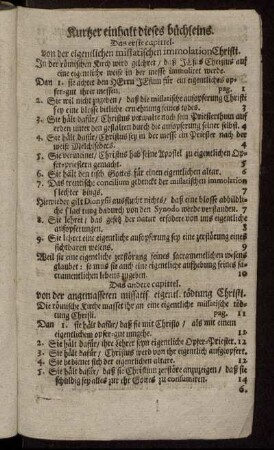 Kurtzer einhalt dieses büchleins.
Das erste capittel.
von der eigentlichen missatischen immolation Christi.
In der römischen Kirch wird gelehret / daß JEsus Christus auf
eine eigentliche weise in der messe immolieret werde.
Dan 1. sie achtet den HErrn JEsum für ein eigentliches op-
fer-gut ihrer messen. pag. 1
2. Sie wil nicht zugeben / daß die missatische aufopferung Christi
sey eine blosse bittliche erinnerung seines todes. 3
3. Sie hält dafür / Christus verwalte nach sein Priesterthum auf
erden unter den gestalten durch die aufopferung seiner selbst. 4
4. Sie hält dafür / Christus sey in der messe ein Priester nach der
weiß Melchisedes. 5
5. Sie vermeinet / Christus hab seine Apostel zu eigentlichen Op-
fer-priestern gemacht. 5
6. Sie hält den tisch Gottes für einen eigentlichen altar. 6
7. Das tridentische concilium gedencket der missatischen immolation
schlechter dings. 7
Hierwieder gilt Dionysii ausflucht nichts / daß eine blosse abbildli-
che schlachtung dadurch von den Synodo werde verstanden. 7
8. Sie lehret / das gesetz der natur erfoder von uns eigentliche
aufopferungen. 8
9. Sie lehret eine eigentliche aufopferung sey eine zerstörung eines
sichtbaren wesens. 9
Weil sie eine eigentliche zerstörung seines sacramentlichen wesens
glaubet: so muß sie auch eine eigentliche aufhebung seines sa-
cramentlichen lebens zugeben. 10
Das andere capittel.
von der angemasseten missatif. eigentl. tödtung Christi.
Die römische Kirche masset ihr an eine eigentliche missatische töd-
tung Christi. pag. 11
Dan 1. sie hält dafür / daß sie mit Christo / als mit einem
eigentlichem opfer-gut umgehe. 12
2. Sie hält dafür / ihre lehrer seyn eigentliche Opfer-Priester. 12
3. Sie hält dafür / Christus werd von ihr eigentlich aufgeopfert. 12
4. Sie bedienet sich der eigentlichen altäre. 12
5. Sie hält dafür / daß sie Christum zerstöre anzuzeigen / daß sie
schüldig sey alles zur ehr Gottes zu consumiren. 14
6.